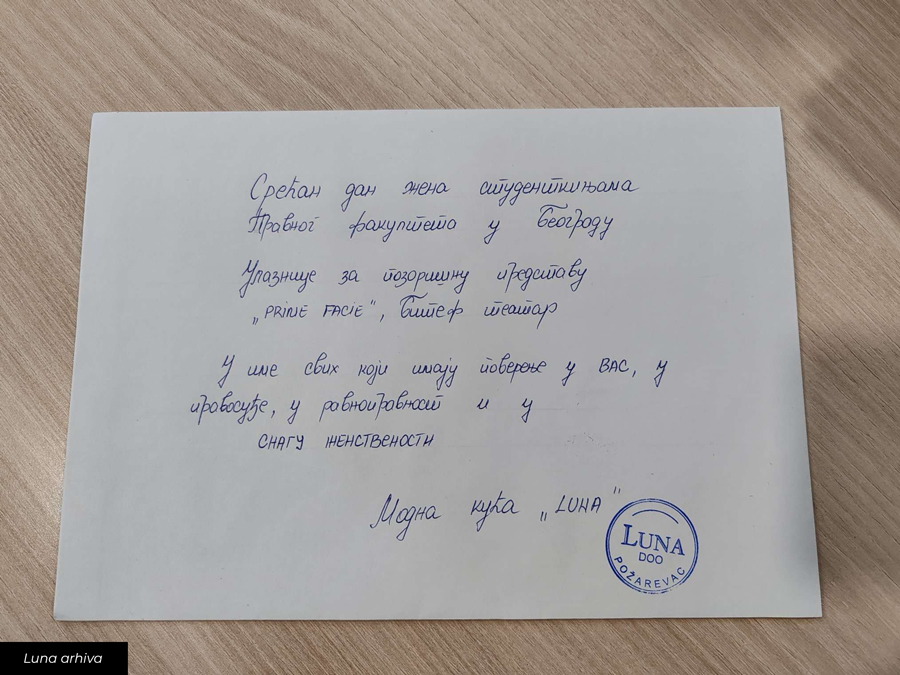 Срећан дан жена студенткињама
Правног факултета у Београду
Улазнице за позоришну представу
„PRIME FACIE", Битеф театар
У име свих који имају поверење у ВАС, у
правосуђе, у равноправност и у
СНАГУ ЖЕНСТВЕНОСТИ
Модна кућа „LUNA"
LUNA
DOO
POŽAREVAC
Luna arhiva